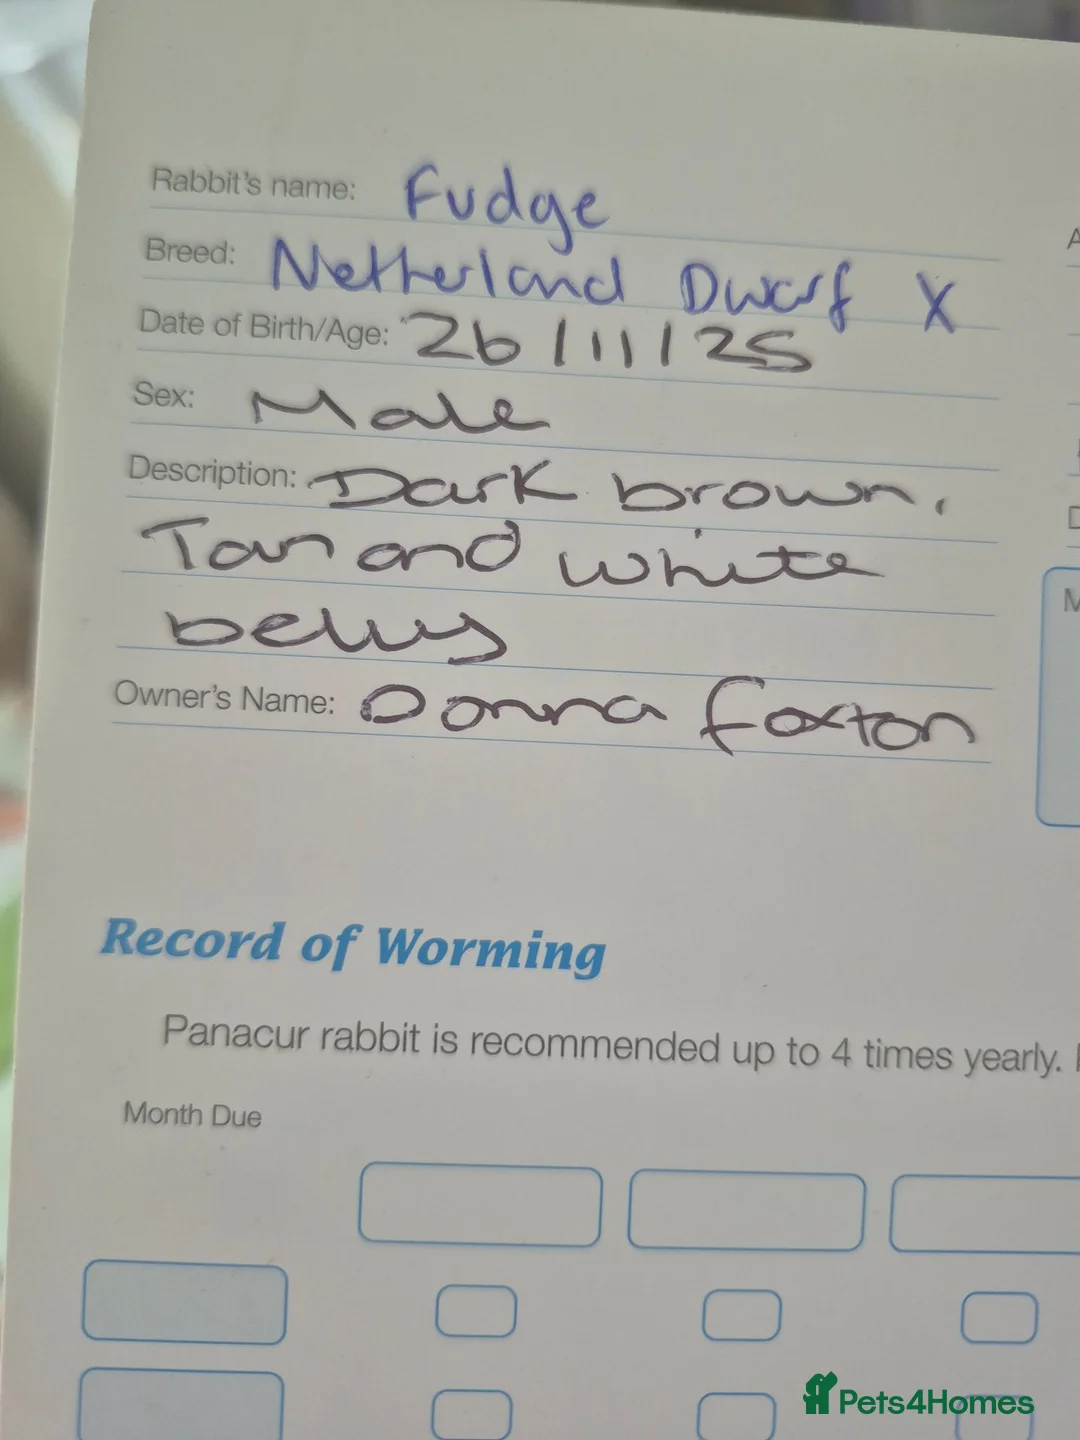 Rabbit's name: Fudge
Breed: Netherland Dwarf X
Date of Birth/Age: 26/11/25
Sex: Male
Description: Dark brown,
Tan and white
belly
Owner's Name: Donna Foxton
Record of Worming
Panacur rabbit is recommended up to 4 times yearly.
Month Due
Pets4Homes